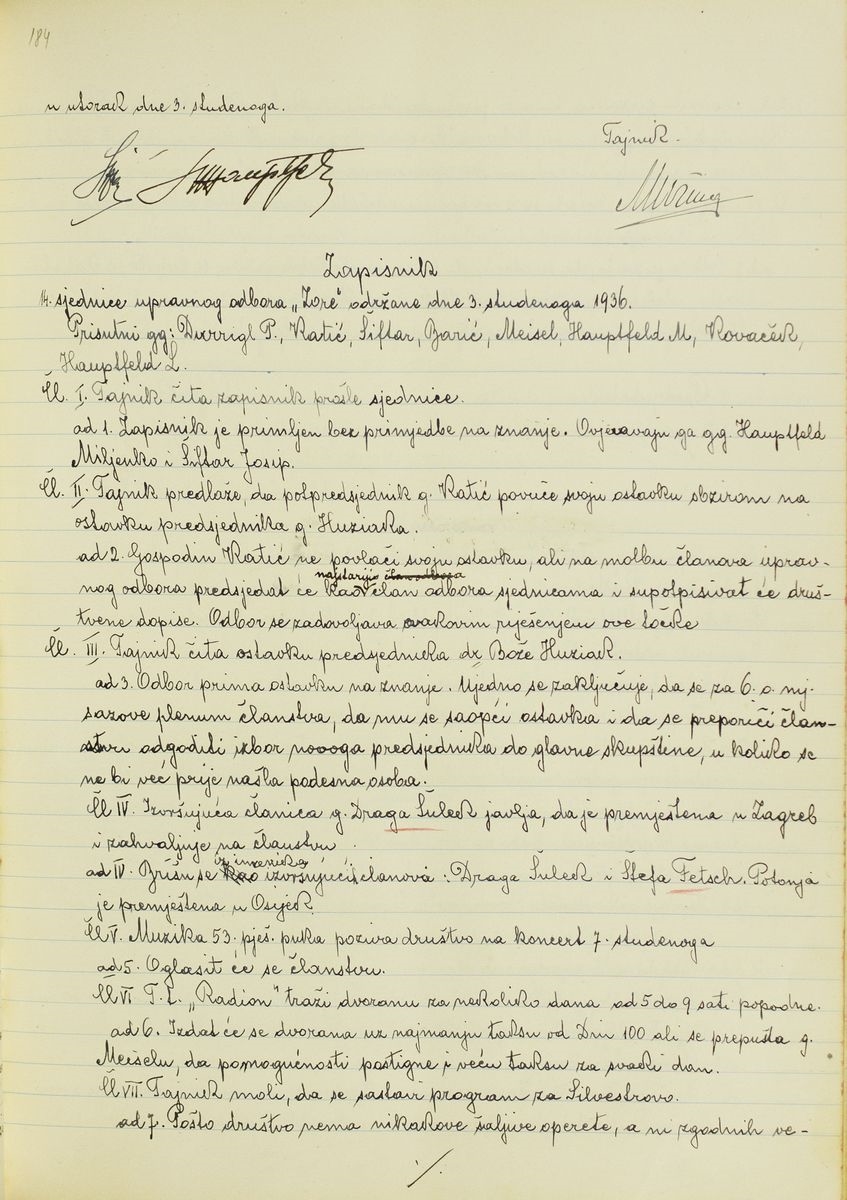 184
u utorak dne 3. studenoga.
Tajnik.
Hauptfeld
Zapisnik
14. sjednice upravnog odbora „Zore" održane dne 3. studenoga 1936.
Prisutni gg: Durrigl P., Katić, Šiftar, Barić, Meisel, Hauptfeld M, Kovaček,
Hauptfeld L.
Čl. I. Tajnik čita zapisnik prošle sjednice.
ad 1. Zapisnik je primljen bez primjedbe na znanje. Ovjeravaju ga gg. Hauptfeld
Miljenko i Šiftar Josip.
Čl. II. Tajnik predlaže, da potpredsjednik g. Katić povuče svoju ostavku obzirom na
ostavku predsjednika g. Huziaka.
ad 2. Gospodin Katić ne povlači svoju ostavku, ali na molbu članova uprav-
najstariji član odbora
nog odbora predsjedat će kao član odbora sjednicama i supotpisivat će druš-
tvene dopise. Odbor se zadovoljava ovakovim riješenjem ove točke
Čl. III. Tajnik čita ostavku predsjednika dr Bože Huziak.
ad 3. Odbor prima ostavku na znanje. Ujedno se zaključuje, da se za 6. o. mj.
sazove plenum članstva, da mu se saopći ostavka i da se preporiči član-
stvu odgoditi izbor novoga predsjednika do glavne skupštine, u koliko se
ne bi već prije našla podesna osoba.
Čl IV. Izvršujuća članica g. Draga Šulek javlja, da je premještena u Zagreb
i zahvaljuje na članstvu.
iz imenika
ad IV. Brišu se kao izvršujućih članova: Draga Šulek i Štefa Fetsch. Potonja
je premještena u Osijek.
Čl V. Muzika 53. pješ. puka poziva društvo na koncert 7. studenoga
ad 5. Oglasit će se članstvu.
Čl VI T. L. „Radion" traži dvoranu za nekoliko dana od 5 do 9 sati popodne.
ad 6. Izdat će se dvorana uz najmanju taksu od Din 100 ali se prepušta g.
Meiselu, da po mogućnosti postigne i veću taksu za svaki dan.
Čl VII. Tajnik moli, da se sastavi program za Silvestrovo.
ad 7. Pošto društvo nema nikakove šaljive operete, a ni zgodnih ve-
./.